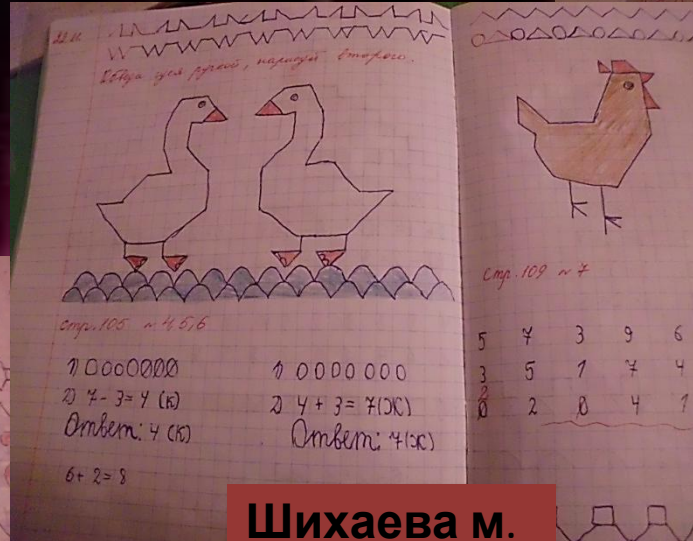 22.11.
Обведи гуся ручкой, нарисуй второго.
стр. 105 № 4,5,6
1) 0000000
2) 7 - 3 = 4 (к)
Ответ: 4 (к)
6 + 2 = 8
1) 0000000
2) 4 + 3 = 7(ж)
Ответ: 7(ж)
Стр. 109 № 7
5 7 3 9 6
3 5 1 7 4
2 2 0 4 1
Шихаева м.